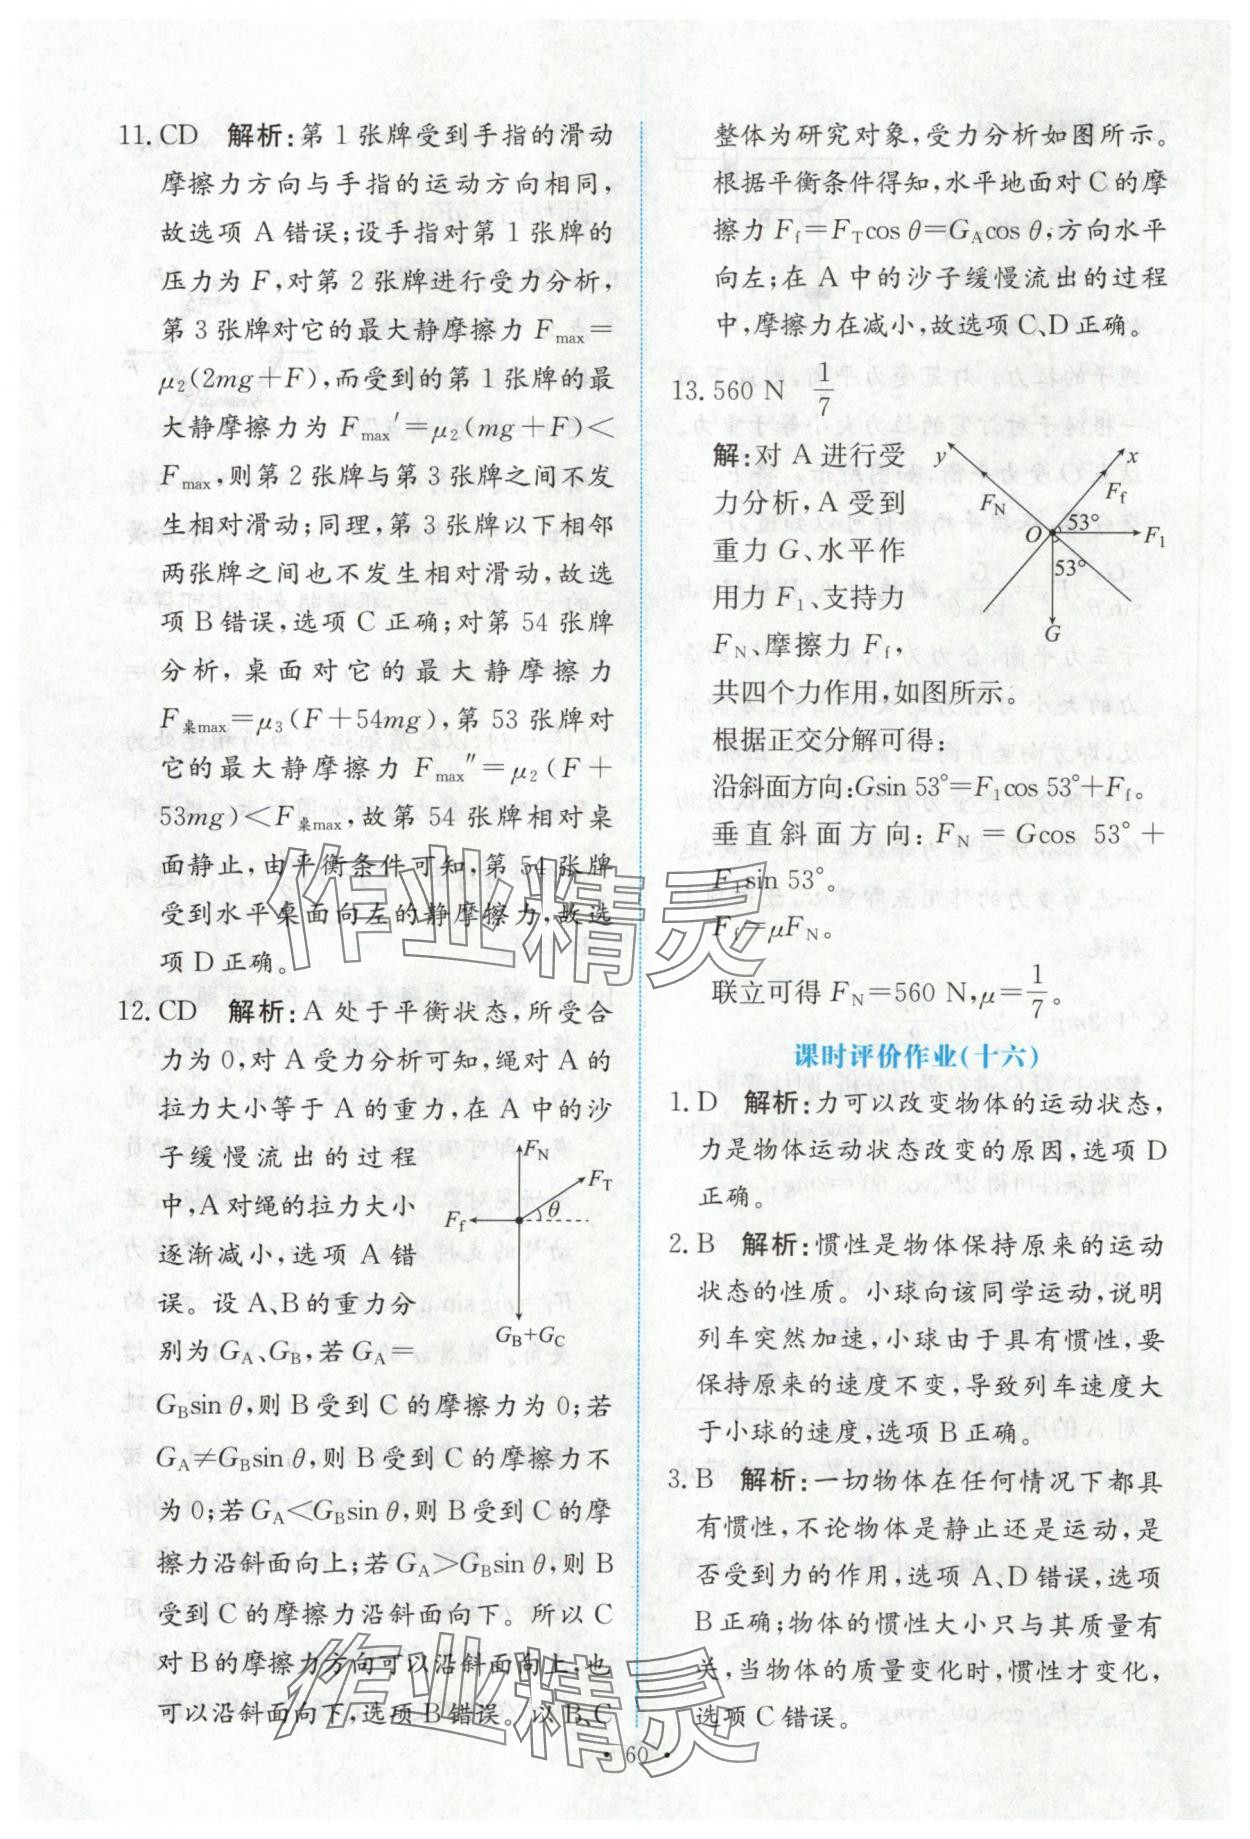 11. CD　解析:第 1 张牌受到手指的滑动
摩擦力方向与手指的运动方向相同,
故选项 A 错误;设手指对第 1 张牌的
压力为 F,对第 2 张牌进行受力分析,
第 3 张牌对它的最大静摩擦力 Fmax=
μ2(2mg+F),而受到的第 1 张牌的最
大静摩擦力为 Fmax′=μ2(mg+F)<
Fmax,则第 2 张牌与第 3 张牌之间不发
生相对滑动;同理,第 3 张牌以下相邻
两张牌之间也不发生相对滑动,故选
项 B 错误,选项 C 正确;对第 54 张牌
分析,桌面对它的最大静摩擦力
F桌max=μ3(F+54mg),第 53 张牌对
它的最大静摩擦力 Fmax″=μ2(F+
53mg)<F桌max,故第 54 张牌相对桌
面静止,由平衡条件可知,第 54 张牌
受到水平桌面向左的静摩擦力,故选
项 D 正确。
12. CD　解析:A 处于平衡状态,所受合
力为 0,对 A 受力分析可知,绳对 A 的
拉力大小等于 A 的重力,在 A 中的沙
子缓慢流出的过程
中,A 对绳的拉力大小
逐渐减小,选项 A 错
误。设 A、B 的重力分
别为 GA、GB,若 GA=
FN
FT
Ff
θ
GB+GC
GBsin θ,则 B 受到 C 的摩擦力为 0;若
GA≠GBsin θ,则 B 受到 C 的摩擦力不
为 0;若 GA<GBsin θ,则 B 受到 C 的摩
擦力沿斜面向上;若 GA>GBsin θ,则 B
受到 C 的摩擦力沿斜面向下。所以 C
对 B 的摩擦力方向可以沿斜面向上,也
可以沿斜面向下,选项 B 错误。以 B、C
整体为研究对象,受力分析如图所示。
根据平衡条件得知,水平地面对 C 的摩
擦力 Ff=FTcos θ=GAcos θ,方向水平
向左;在 A 中的沙子缓慢流出的过程
中,摩擦力在减小,故选项 C、D 正确。
13. 560 N　1/7
解:对 A 进行受
力分析,A 受到
重力 G、水平作
用力 F1、支持力
FN、摩擦力 Ff,
y
x
FN
Ff
O
53°
F1
53°
G
共四个力作用,如图所示。
根据正交分解可得:
沿斜面方向:Gsin 53°=F1cos 53°+Ff。
垂直斜面方向: FN = Gcos 53° +
F1sin 53°。
Ff=μFN。
联立可得 FN=560 N,μ=1/7。
课时评价作业(十六)
1. D　解析:力可以改变物体的运动状态,
力是物体运动状态改变的原因,选项 D
正确。
2. B　解析:惯性是物体保持原来的运动
状态的性质。小球向该同学运动,说明
列车突然加速,小球由于具有惯性,要
保持原来的速度不变,导致列车速度大
于小球的速度,选项 B 正确。
3. B　解析:一切物体在任何情况下都具
有惯性,不论物体是静止还是运动,是
否受到力的作用,选项 A、D 错误,选项
B 正确;物体的惯性大小只与其质量有
关,当物体的质量变化时,惯性才变化,
选项 C 错误。
• 60 •
作业精灵
作业精灵